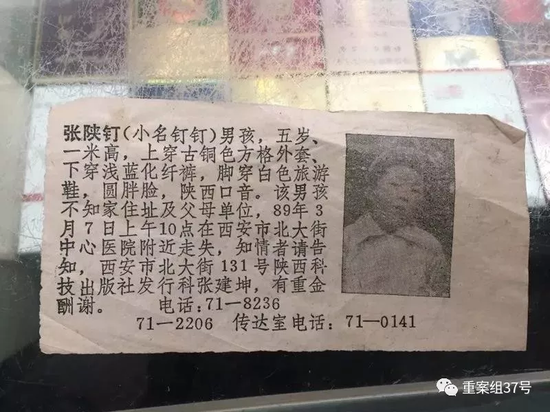 张陕钉(小名钉钉)男孩，五岁、
一米高，上穿古铜色方格外套、
下穿浅蓝化纤裤，脚穿白色旅游
鞋，圆胖脸，陕西口音。该男孩
不知家住址及父母单位，89年3
月7日上午10点在西安市北大街
中心医院附近走失，知情者请告
知，西安市北大街131号陕西科
技出版社发行科张建坤，有重金
酬谢。 电话:71-8236
71-2206 传达室电话：71—0141
重案组37号